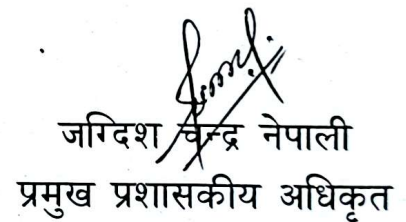 जग्दिश चन्द्र नेपाली
प्रमुख प्रशासकीय अधिकृत